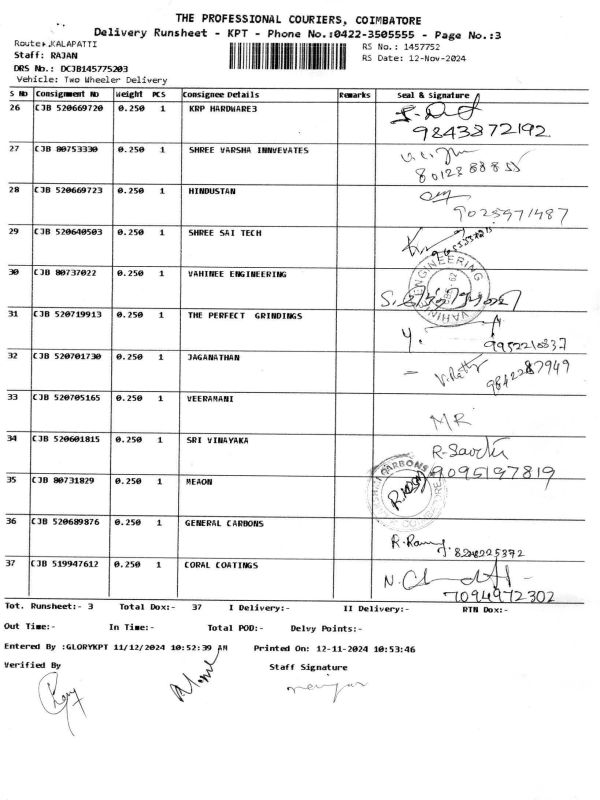 THE PROFESSIONAL COURIERS, COIMBATORE
Delivery Runsheet - KPT - Phone No.:0422-3505555 - Page No.:3
Route: KALAPATTI RS No.: 1457752
Staff: RAJAN RS Date: 12-Nov-2024
DRS No.: DCJB145775203
Vehicle: Two Wheeler Delivery
S No Consignment No Weight PCS Consignee Details Remarks Seal & Signature
26 CJB 520669720 0.250 1 KRP HARDWARE3
9843872192
27 CJB 80753330 0.250 1 SHREE VARSHA INNVEVATES
28 CJB 520669723 0.250 1 HINDUSTAN
9025971487
29 CJB 520640503 0.250 1 SHREE SAI TECH
30 CJB 80737022 0.250 1 VAHINEE ENGINEERING
ENGINEERING
31 CJB 520719913 0.250 1 THE PERFECT GRINDINGS
9952210837
32 CJB 520701730 0.250 1 JAGANATHAN
9842287949
33 CJB 520705165 0.250 1 VEERAMANI
MR
34 CJB 520601815 0.250 1 SRI VINAYAKA
9095197819
35 CJB 80731829 0.250 1 MEAON
CARBONS
36 CJB 520689876 0.250 1 GENERAL CARBONS
37 CJB 519947612 0.250 1 CORAL COATINGS
7094972302
Tot. Runsheet:- 3 Total Dox:- 37 I Delivery:- II Delivery:- RTN Dox:-
Out Time:- In Time:- Total POD:- Delvy Points:-
Entered By :GLORYKPT 11/12/2024 10:52:39 AM Printed On: 12-11-2024 10:53:46
Verified By Staff Signature